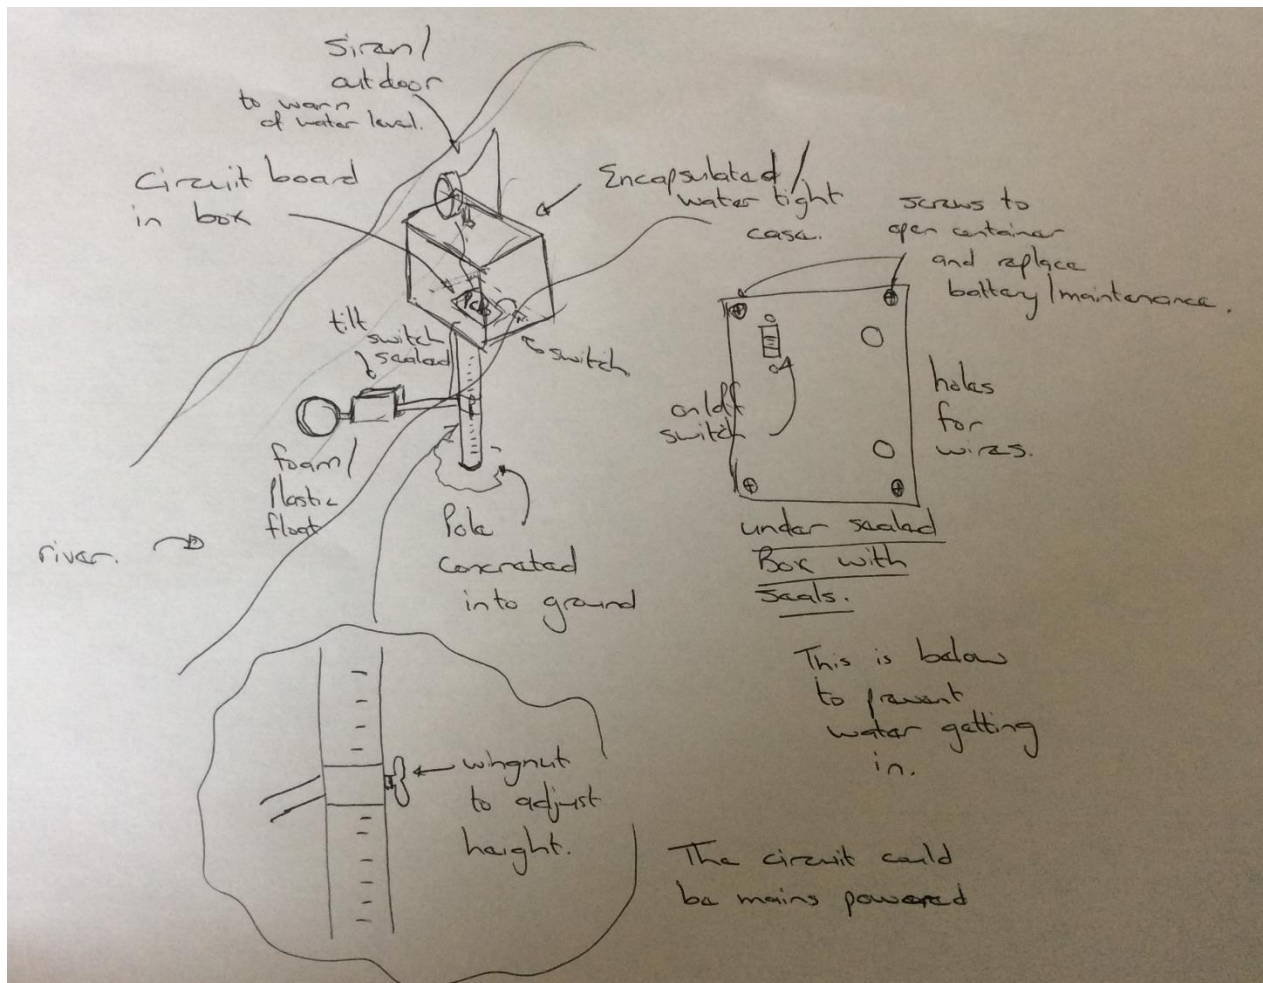 Siren/
outdoor
to warn
of water level.
Circuit board
in box
Encapsulated/
water tight
case.
screws to
open container
and replace
battery/maintenance.
PCB
tilt
switch
sealed
switch
on/off
switch
holes
for
wires.
foam/
Plastic
float
river.
Pole
concreted
into ground
under sealed
Box with
seals.
This is below
to prevent
water getting
in.
wingnut
to adjust
height.
The circuit could
be mains powered